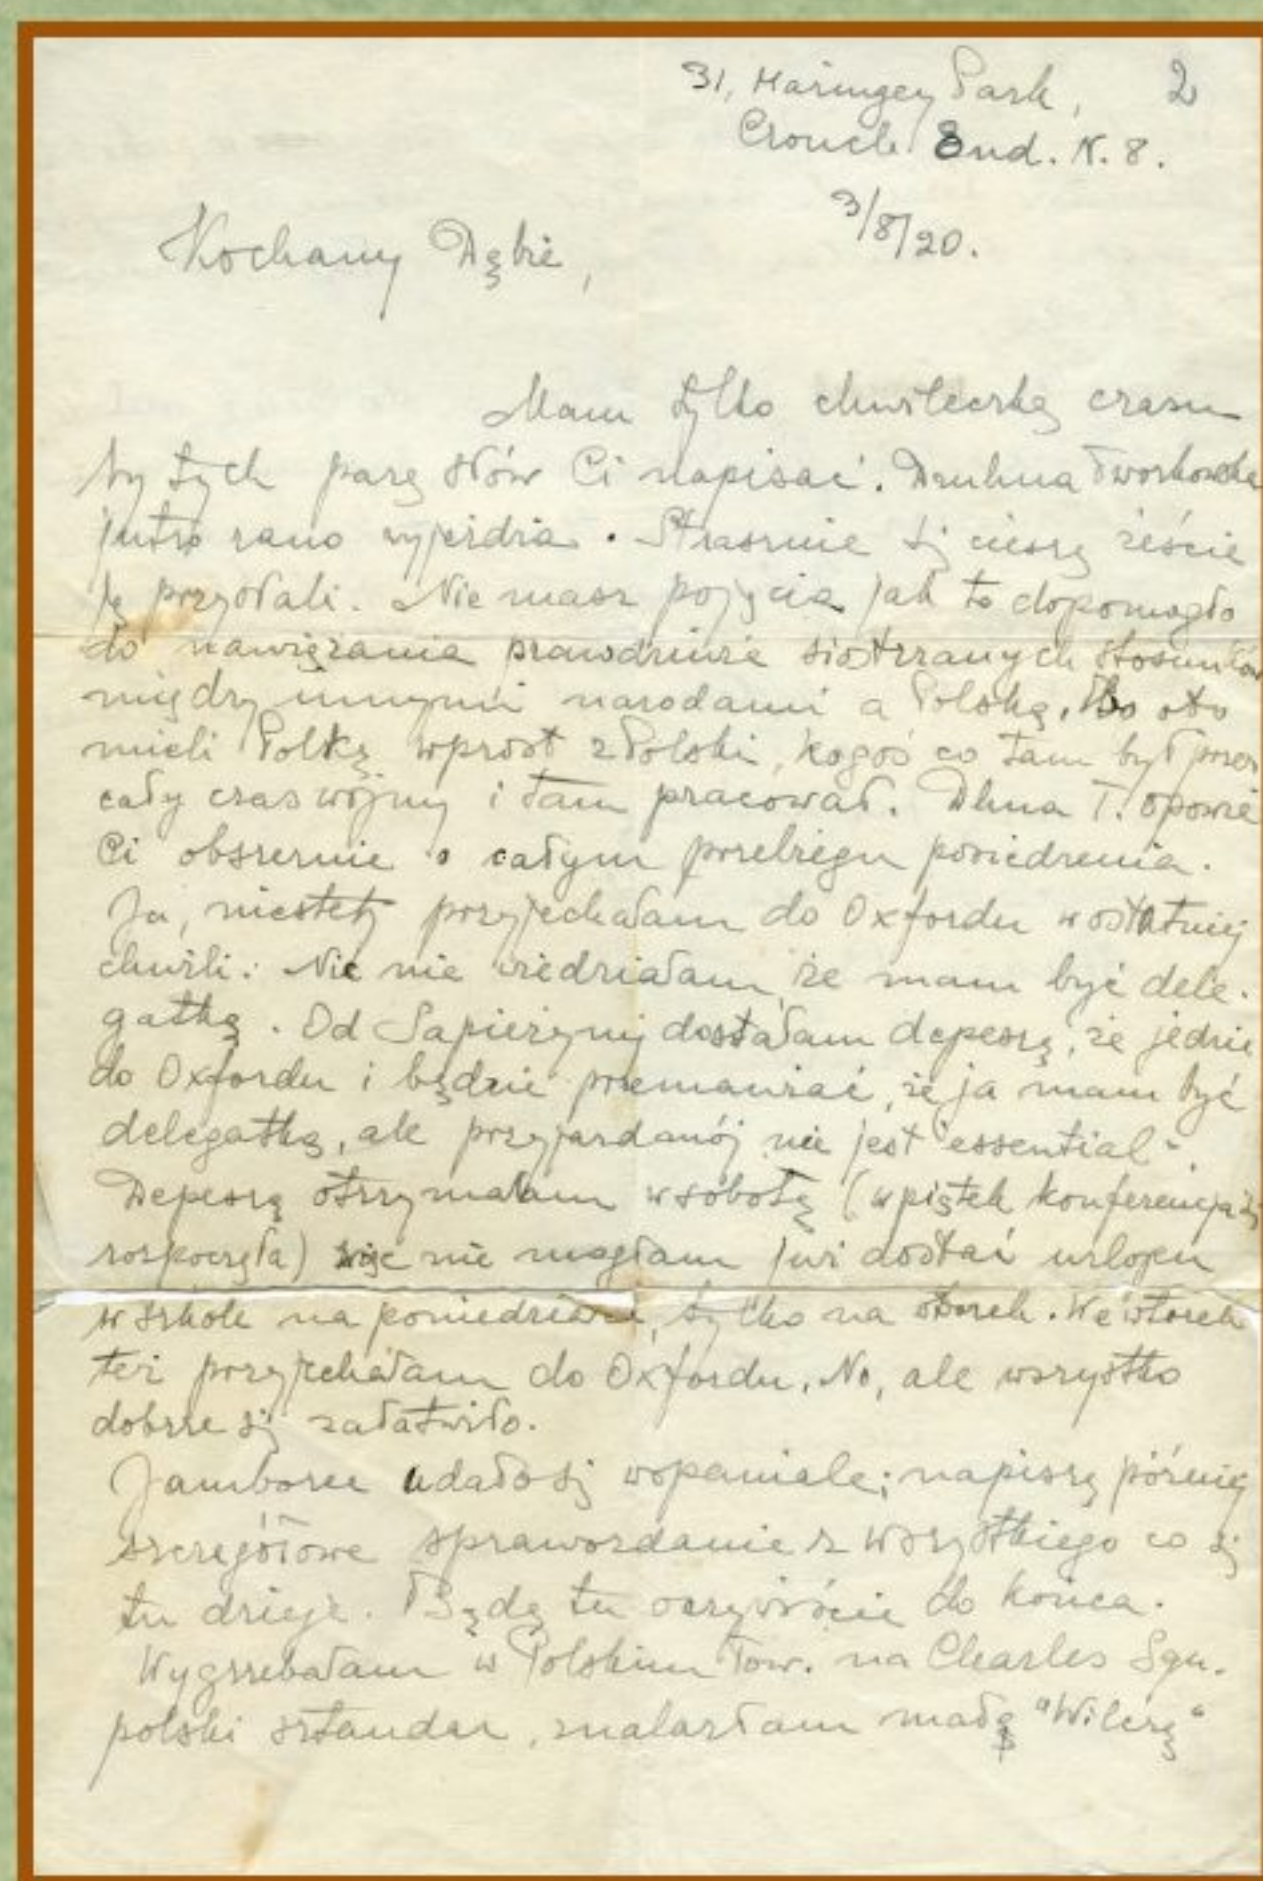 31, Haringey Park, 2
Crouch End. N. 8.
3/8/20.
Kochany Dębie,
Mam tylko chwileczkę czasu
by tych parę słów Ci napisać. Druhna Tworkowska
jutro rano wyjeżdża. Strasznie się cieszę żeście
ją przysłali. Nie masz pojęcia jak to dopomogło
do nawiązania prawdziwie siostrzanych stosunków
między innymi narodami a Polską, bo oto
mieli Polkę wprost z Polski, kogoś co tam był przez
cały czas wojny i tam pracował. Dhna T. opowie
Ci obszernie o całym przebiegu posiedzenia.
Ja, niestety przyjechałam do Oxfordu w ostatniej
chwili. Nic nie wiedziałam, że mam być dele-
gatką. Od Sapieżyny dostałam depeszę, że jedzie
do Oxfordu i będzie przemawiać, że ja mam być
delegatką, ale przyjazd mój nie jest "essential".
Depeszę otrzymałam w sobotę (w piątek konferencja się
rozpoczęła) więc nie mogłam już dostać urlopu
w szkole na poniedziałek, tylko na wtorek. We wtorek
też przyjechałam do Oxfordu. No, ale wszystko
dobrze się załatwiło.
Jamboree udało się wspaniale; napiszę później
szczegółowe sprawozdanie z wszystkiego co się
tu dzieje. Będę tu oczywiście do końca.
Wygrzebałam w Polskim Tow. na Charles Squ.
polski sztandar, znalazłam małą "Wilczą"